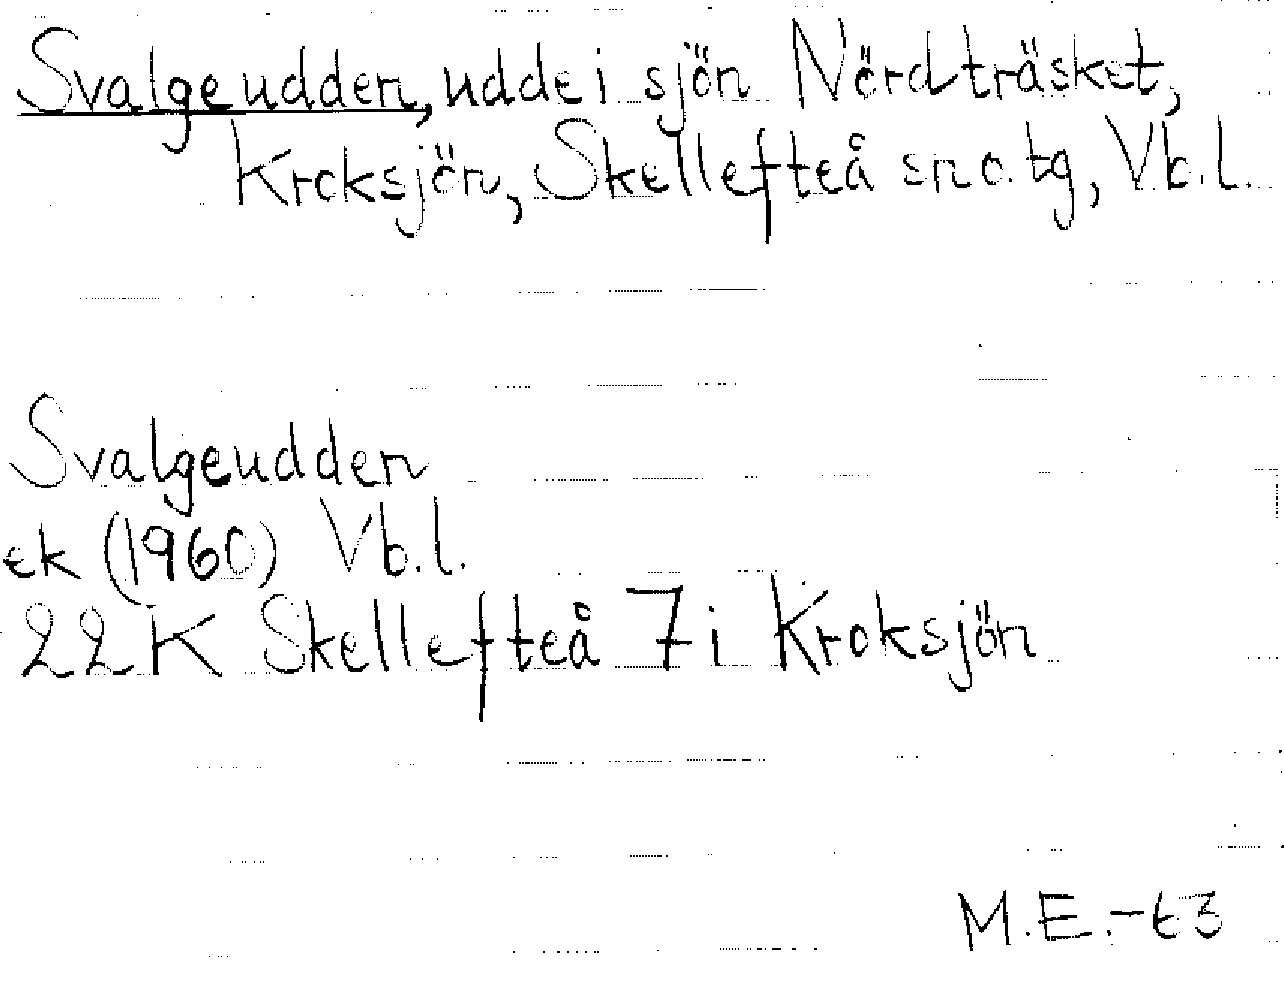 Svalgeudden, udde i sjön Nördträsket,
Kroksjön, Skellefteå sn o. tg, Vb.l.
Svalgeudden
ek (1960) Vb.l.
22K Skellefteå 7i Kroksjön
M.E.-63